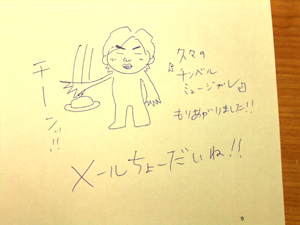 久々の
『チンベル
ミュージカル』
もりあがりました!!
チーンッ!!
メールちょーだいね!!
9